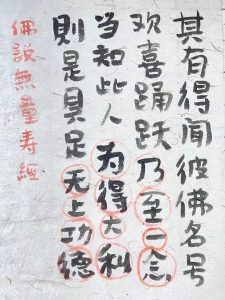 其有得闻彼佛名号
欢喜踊跃乃至一念
当知此人为得大利
則是具足无上功德
佛說無量寿經